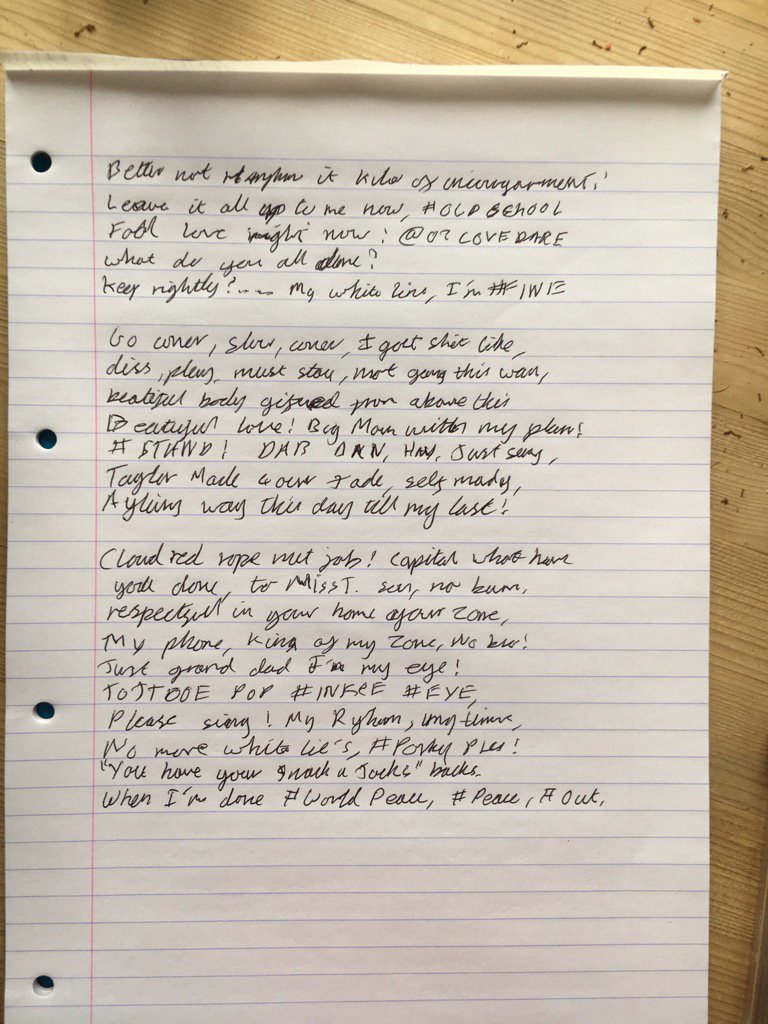 Better not it Kilo of
Leave it all up to me now, #OLDSCHOOL
Fall love right now! @07LOVEDARE
what do you all done?
Keep rightly?.... My white lins, I'm #FINE
Go coner, Slow, coner, I got shit like,
diss, play, must stay, not going this way,
beatiful body gifted from above this
Beautiful love! Big Mom with my plan!
#STAND! DAB DAN, Hay, Just say,
Taylor Made 4 our Jade, self mady,
Ayling way this day till my last!
Cloud red rope nut job! Capital what have
you done, to Miss T. son, no bum,
respectful in your home your zone,
My phone, King of my Zone, No
Just grand dad I'm my eye!
POP #INFEE #EYE,
Please sing! My Ryhum, my timne,
No more white lie's, #Porky Pies!
"You have your Snack a Jacks" backs.
When I'm done #World Peace, #Peace, #Out,